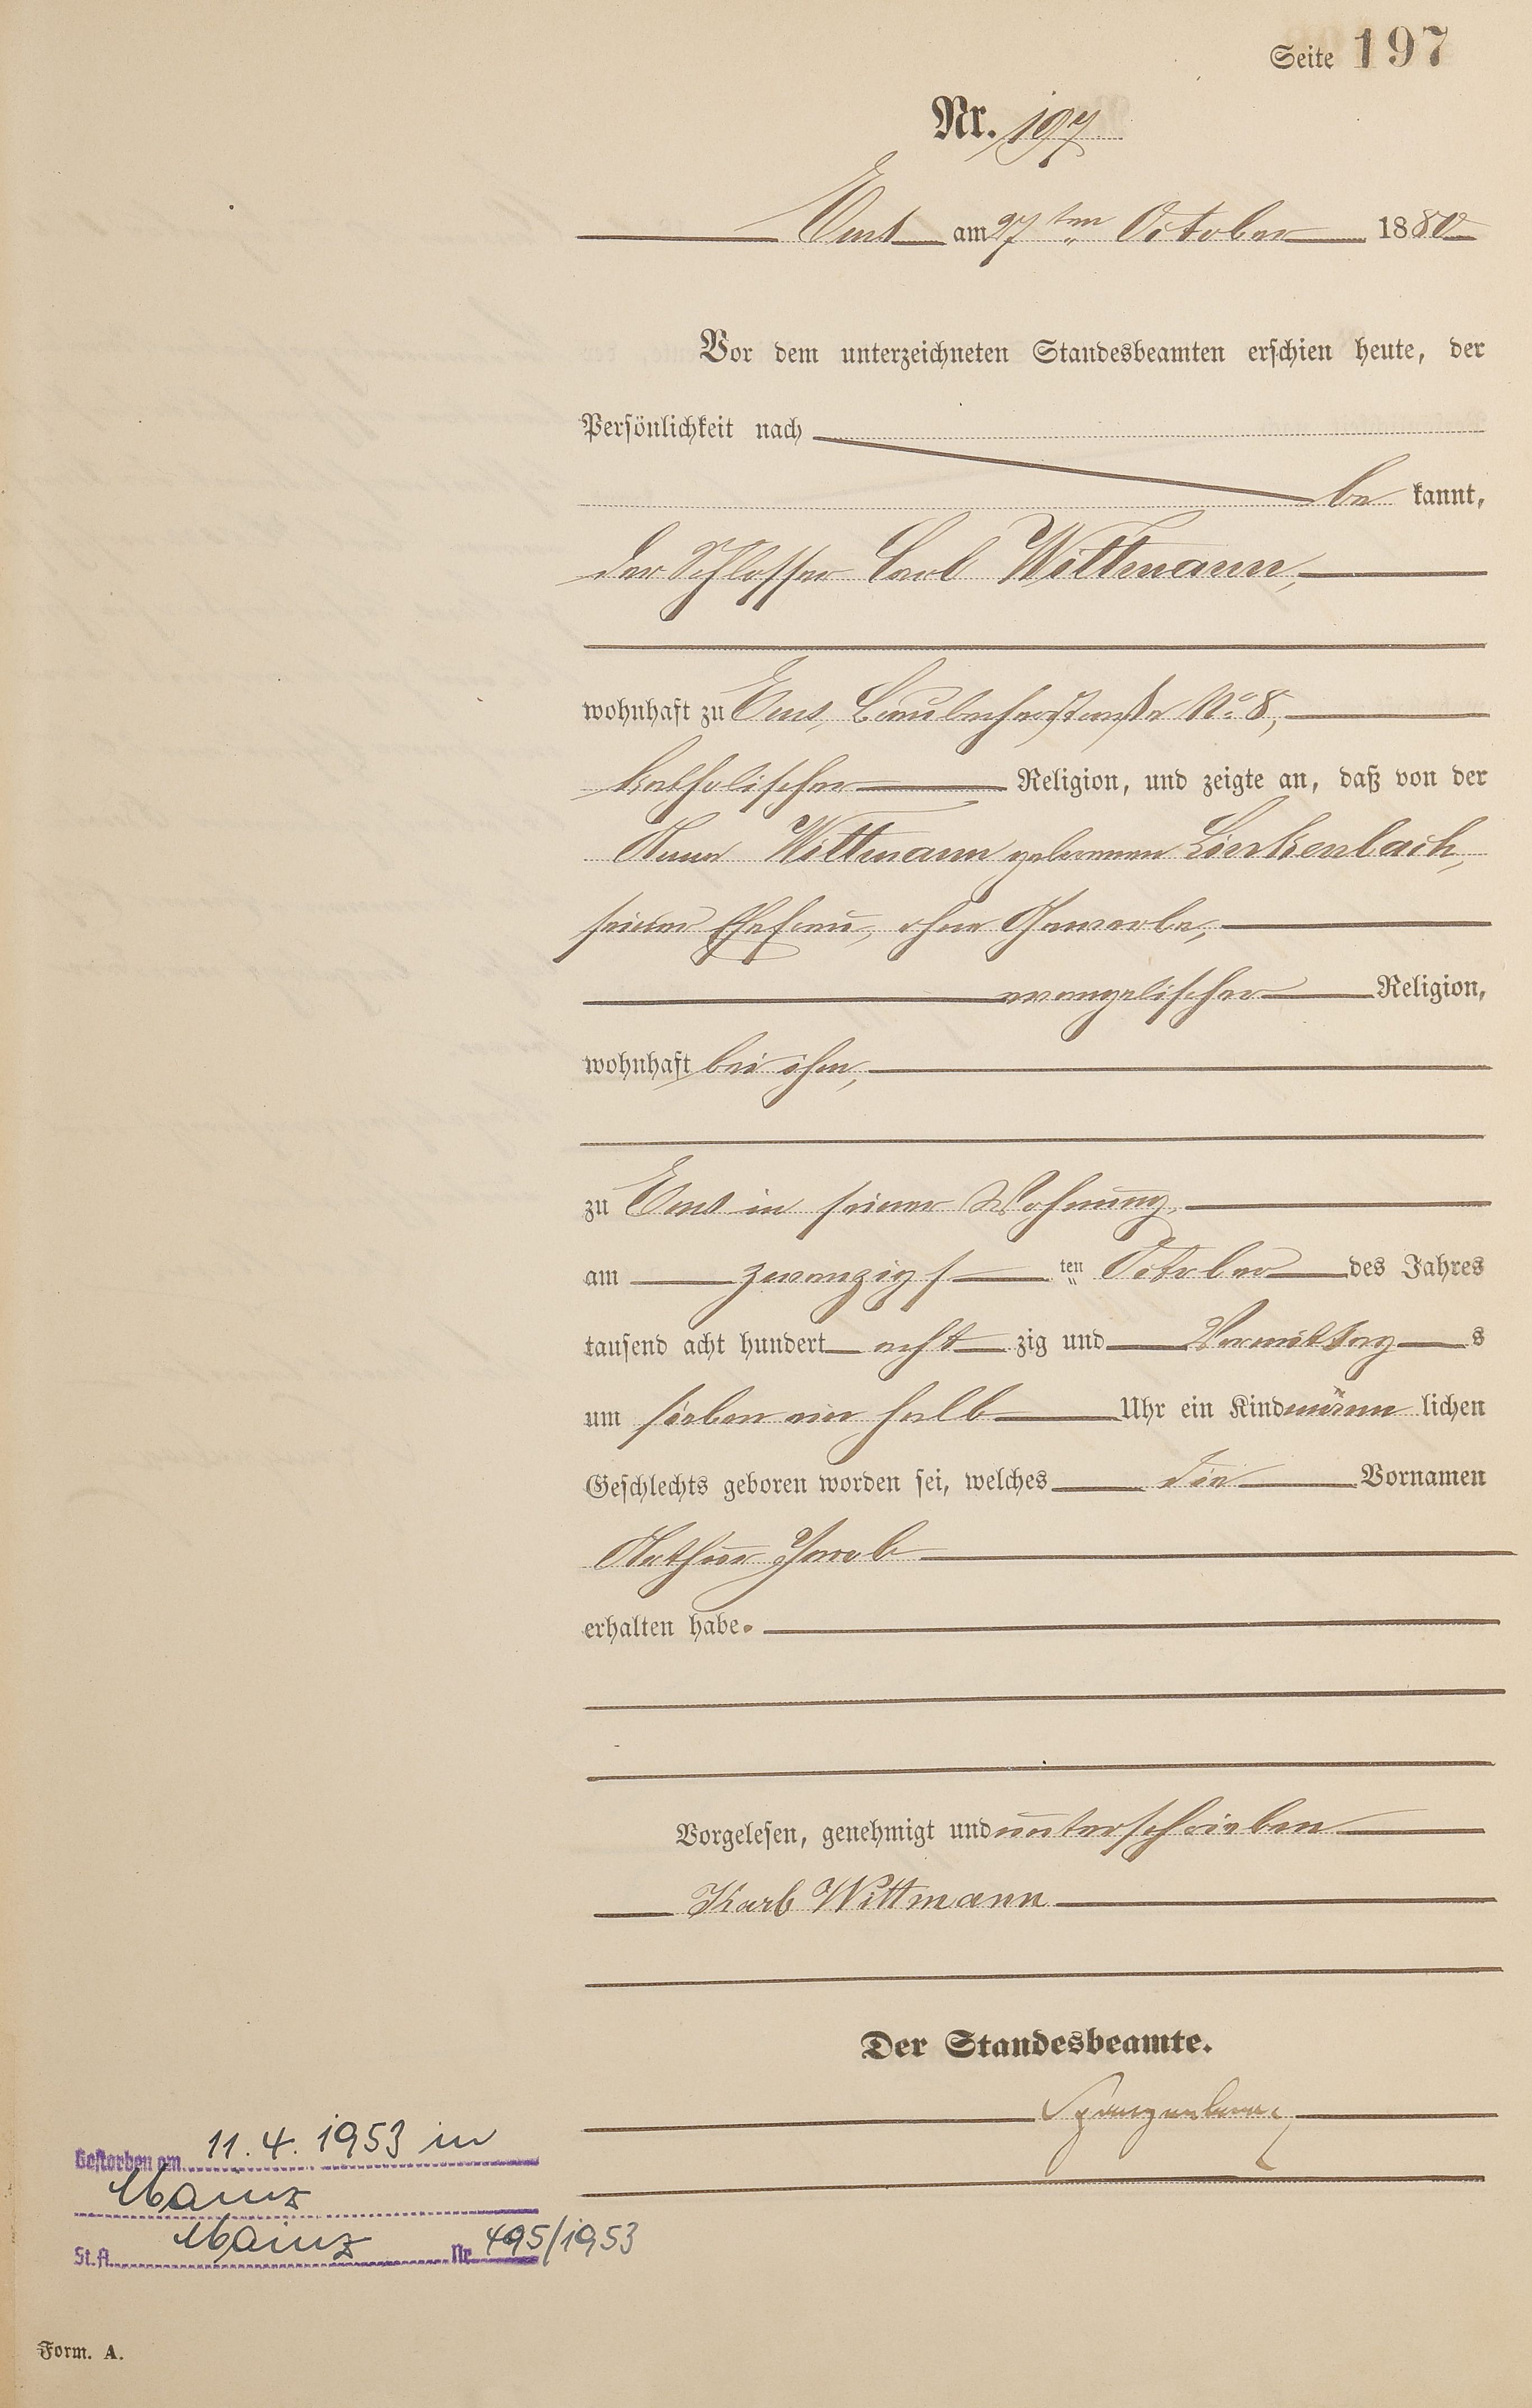 Seite 197
Nr. 197
Ems am 27ten October 1880
Vor dem unterzeichneten Standesbeamten erschien heute, der
Persönlichkeit nach
be kannt,
der Schlosser Carl Wittmann,
wohnhaft zu Ems, Braubacherstraße No. 8,
katholischer Religion, und zeigte an, daß von der
Anna Wittmann geborenen Linkenbach,
seiner Ehefrau, ohne Gewerbe,
evangelischer Religion,
wohnhaft bei ihm,
zu Ems in seiner Wohnung,
am zwanzigs ten October des Jahres
tausend acht hundert acht zig und Vormittag s
um sieben ein halb Uhr ein Kind männ lichen
Geschlechts geboren worden sei, welches die Vornamen
Jacob
erhalten habe.
Vorgelesen, genehmigt und unterschrieben
Karl Wittmann
Der Standesbeamte.
Gestorben am 11.4.1953 in
Mainz
St.A. Mainz Nr. 495/1953
Form. A.